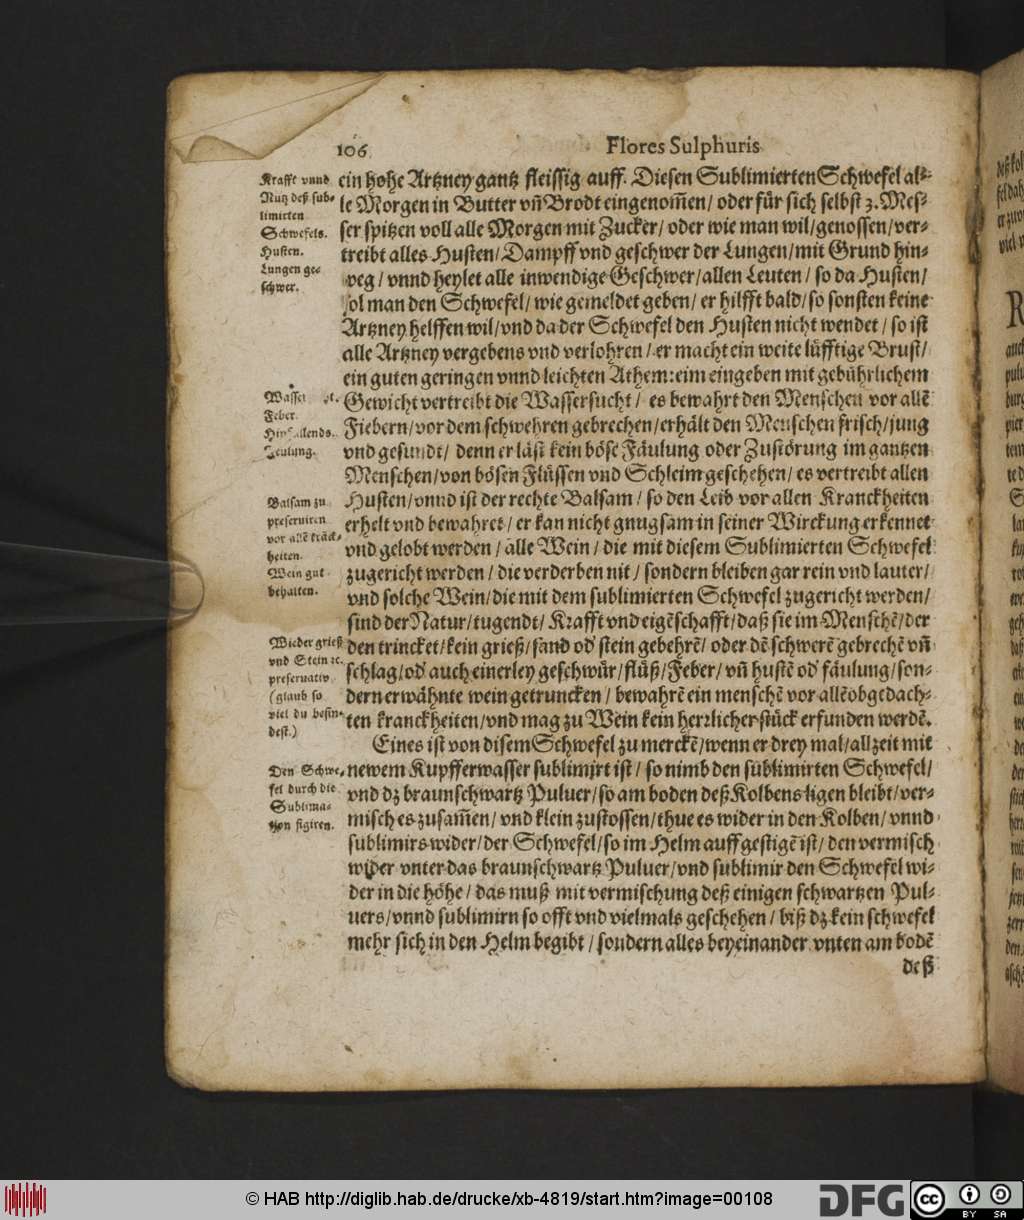 106 Flores Sulphuris
Krafft vnnd
Nutz deß sub-
limirten
Schwefels.
Husten.
Lungen ge-
schwer.
ein hohe Artzney gantz fleissig auff. Diesen Sublimierten Schwefel al-
le Morgen in Butter vñ Brodt eingenom̃en / oder für sich selbst 3. Mes-
ser spitzen voll alle Morgen mit Zucker / oder wie man wil / genossen / ver-
treibt alles Husten / Dampff vnd geschwer der Lungen / mit Grund hin-
weg / vnnd heylet alle inwendige Geschwer / allen Leuten / so da Husten /
sol man den Schwefel / wie gemeldet geben / er hilfft bald / so sonsten keine
Artzney helffen wil / vnd da der Schwefel den Husten nicht wendet / so ist
alle Artzney vergebens vnd verlohren / er macht ein weite lüfftige Brust /
ein guten geringen vnnd leichten Athem: eim eingeben mit gebührlichem
Feber.
Gewicht vertreibt die Wassersucht / es bewahrt den Menschen vor allẽ
Fiebern / vor dem schwehren gebrechen / erhält den Menschen frisch / jung
vnd gesundt / denn er läst kein böse Fäulung oder Zustörung im gantzen
Menschen / von bösen Flüssen vnd Schleim geschehen / es vertreibt allen
Balsam zu
preserviren
vor allẽ kräck-
heiten.
Wein gut
behalten.
Husten / vnnd ist der rechte Balsam / so den Leib vor allen Kranckheiten
erhelt vnd bewahret / er kan nicht gnugsam in seiner Wirckung erkennet
vnd gelobt werden / alle Wein / die mit diesem Sublimierten Schwefel
zugericht werden / die verderben nit / sondern bleiben gar rein vnd lauter /
vnd solche Wein / die mit dem sublimierten Schwefel zugericht werden /
sind der Natur / tugendt / Krafft vnd eigẽschafft / daß sie im Menschẽ / der
Wieder grieß
vnd Stein ꝛc.
preservativ
(glaub so
viel du befin-
dest.)
den trincket / kein grieß / sand od' stein gebehrẽ / oder dẽ schwerẽ gebrechẽ vñ
schlag / od' auch einerley geschwür / flüß / Feber / vñ hustẽ od' fäulung / son-
dern erwähnte wein getruncken / bewahrẽ ein menschẽ vor allẽ obgedach-
ten kranckheiten / vnd mag zu Wein kein herrlicher stück erfunden werdẽ.
Eines ist von disem Schwefel zu merckẽ / wenn er drey mal / allzeit mit
Den Schwe-
fel durch die
Sublima-
tion figiren.
newem Kupfferwasser sublimirt ist / so nimb den sublimirten Schwefel /
vnd dz braunschwartz Puluer / so am boden deß Kolbens ligen bleibt / ver-
misch es zusam̃en / vnd klein zustossen / thue es wider in den Kolben / vnnd
sublimirs wider / der Schwefel / so im Helm auffgestigẽ ist / den vermisch
wider vnter das braunschwartz Puluer / vnd sublimir den Schwefel wi-
der in die höhe / das muß mit vermischung deß einigen schwartzen Pul-
uers / vnnd sublimirn so offt vnd vielmals geschehen / biß dz kein schwefel
mehr sich in den Helm begibt / sondern alles beyeinander vnten am bodẽ
deß
© HAB http://diglib.hab.de/drucke/xb-4819/start.htm?image=00108
DFG
cc
BY SA